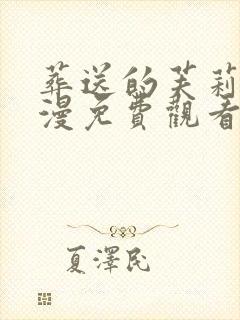 葬送的芙莉
漫免費觀看
夏澤民